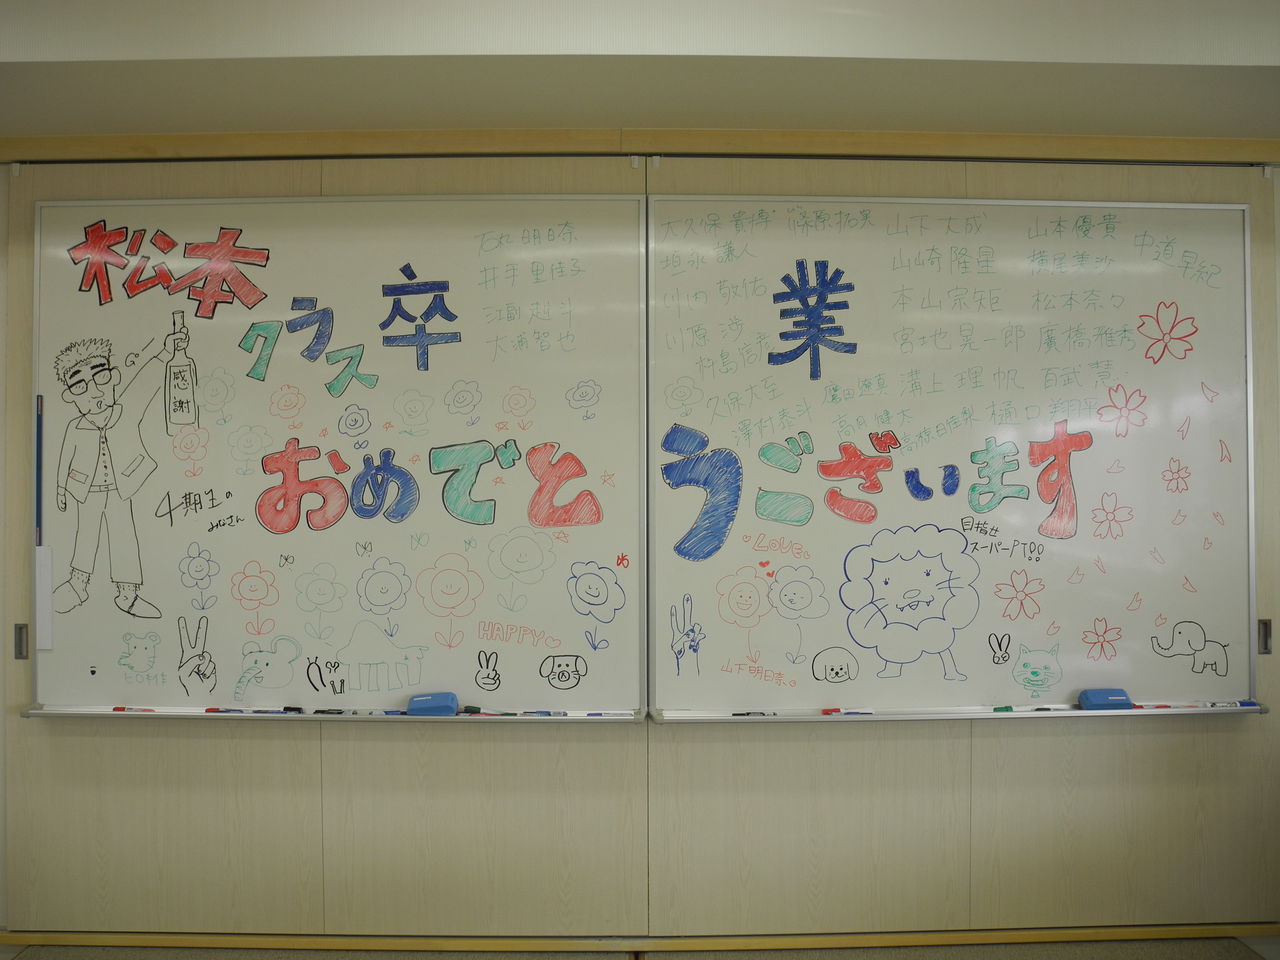 松本
クラス
卒業
おめでとうございます
感謝
十期生の
みなさん
井手 里佳子
大浦 智也
大久保 貴博
篠原 拓実
山下 大成
山本 優貴
中道 早紀
垣永 謙人
山崎 隆星
横尾 美沙
川内 敬佑
本山 宗矩
松本 奈々
川原 滋
宮地 晃一郎
廣橋 雅秀
杵島 信彦
久保 大至
溝上 理帆
百武 慧
澤村 泰斗
高月 健太
樋口 翔平
LOVE
目指せ
スーパーPT!!
HAPPY
山下 明日奈